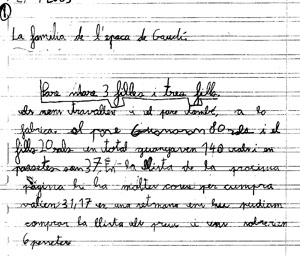 ①
La familia de l'epoca de Gaudí:
Pare mare 3 filles i tres fills.
els nens travallen i el pare també, a la
fabrica. el pare guanaven 80 rals i el
fills 20 rals en total guanyaven 140 rals i en
pesetes son 37, En la llista de la pròcima
pàgina hi ha moltes coses per cumpra
valien 31,17 en una setmana en
comprar la llista als preus i
6 pesetes